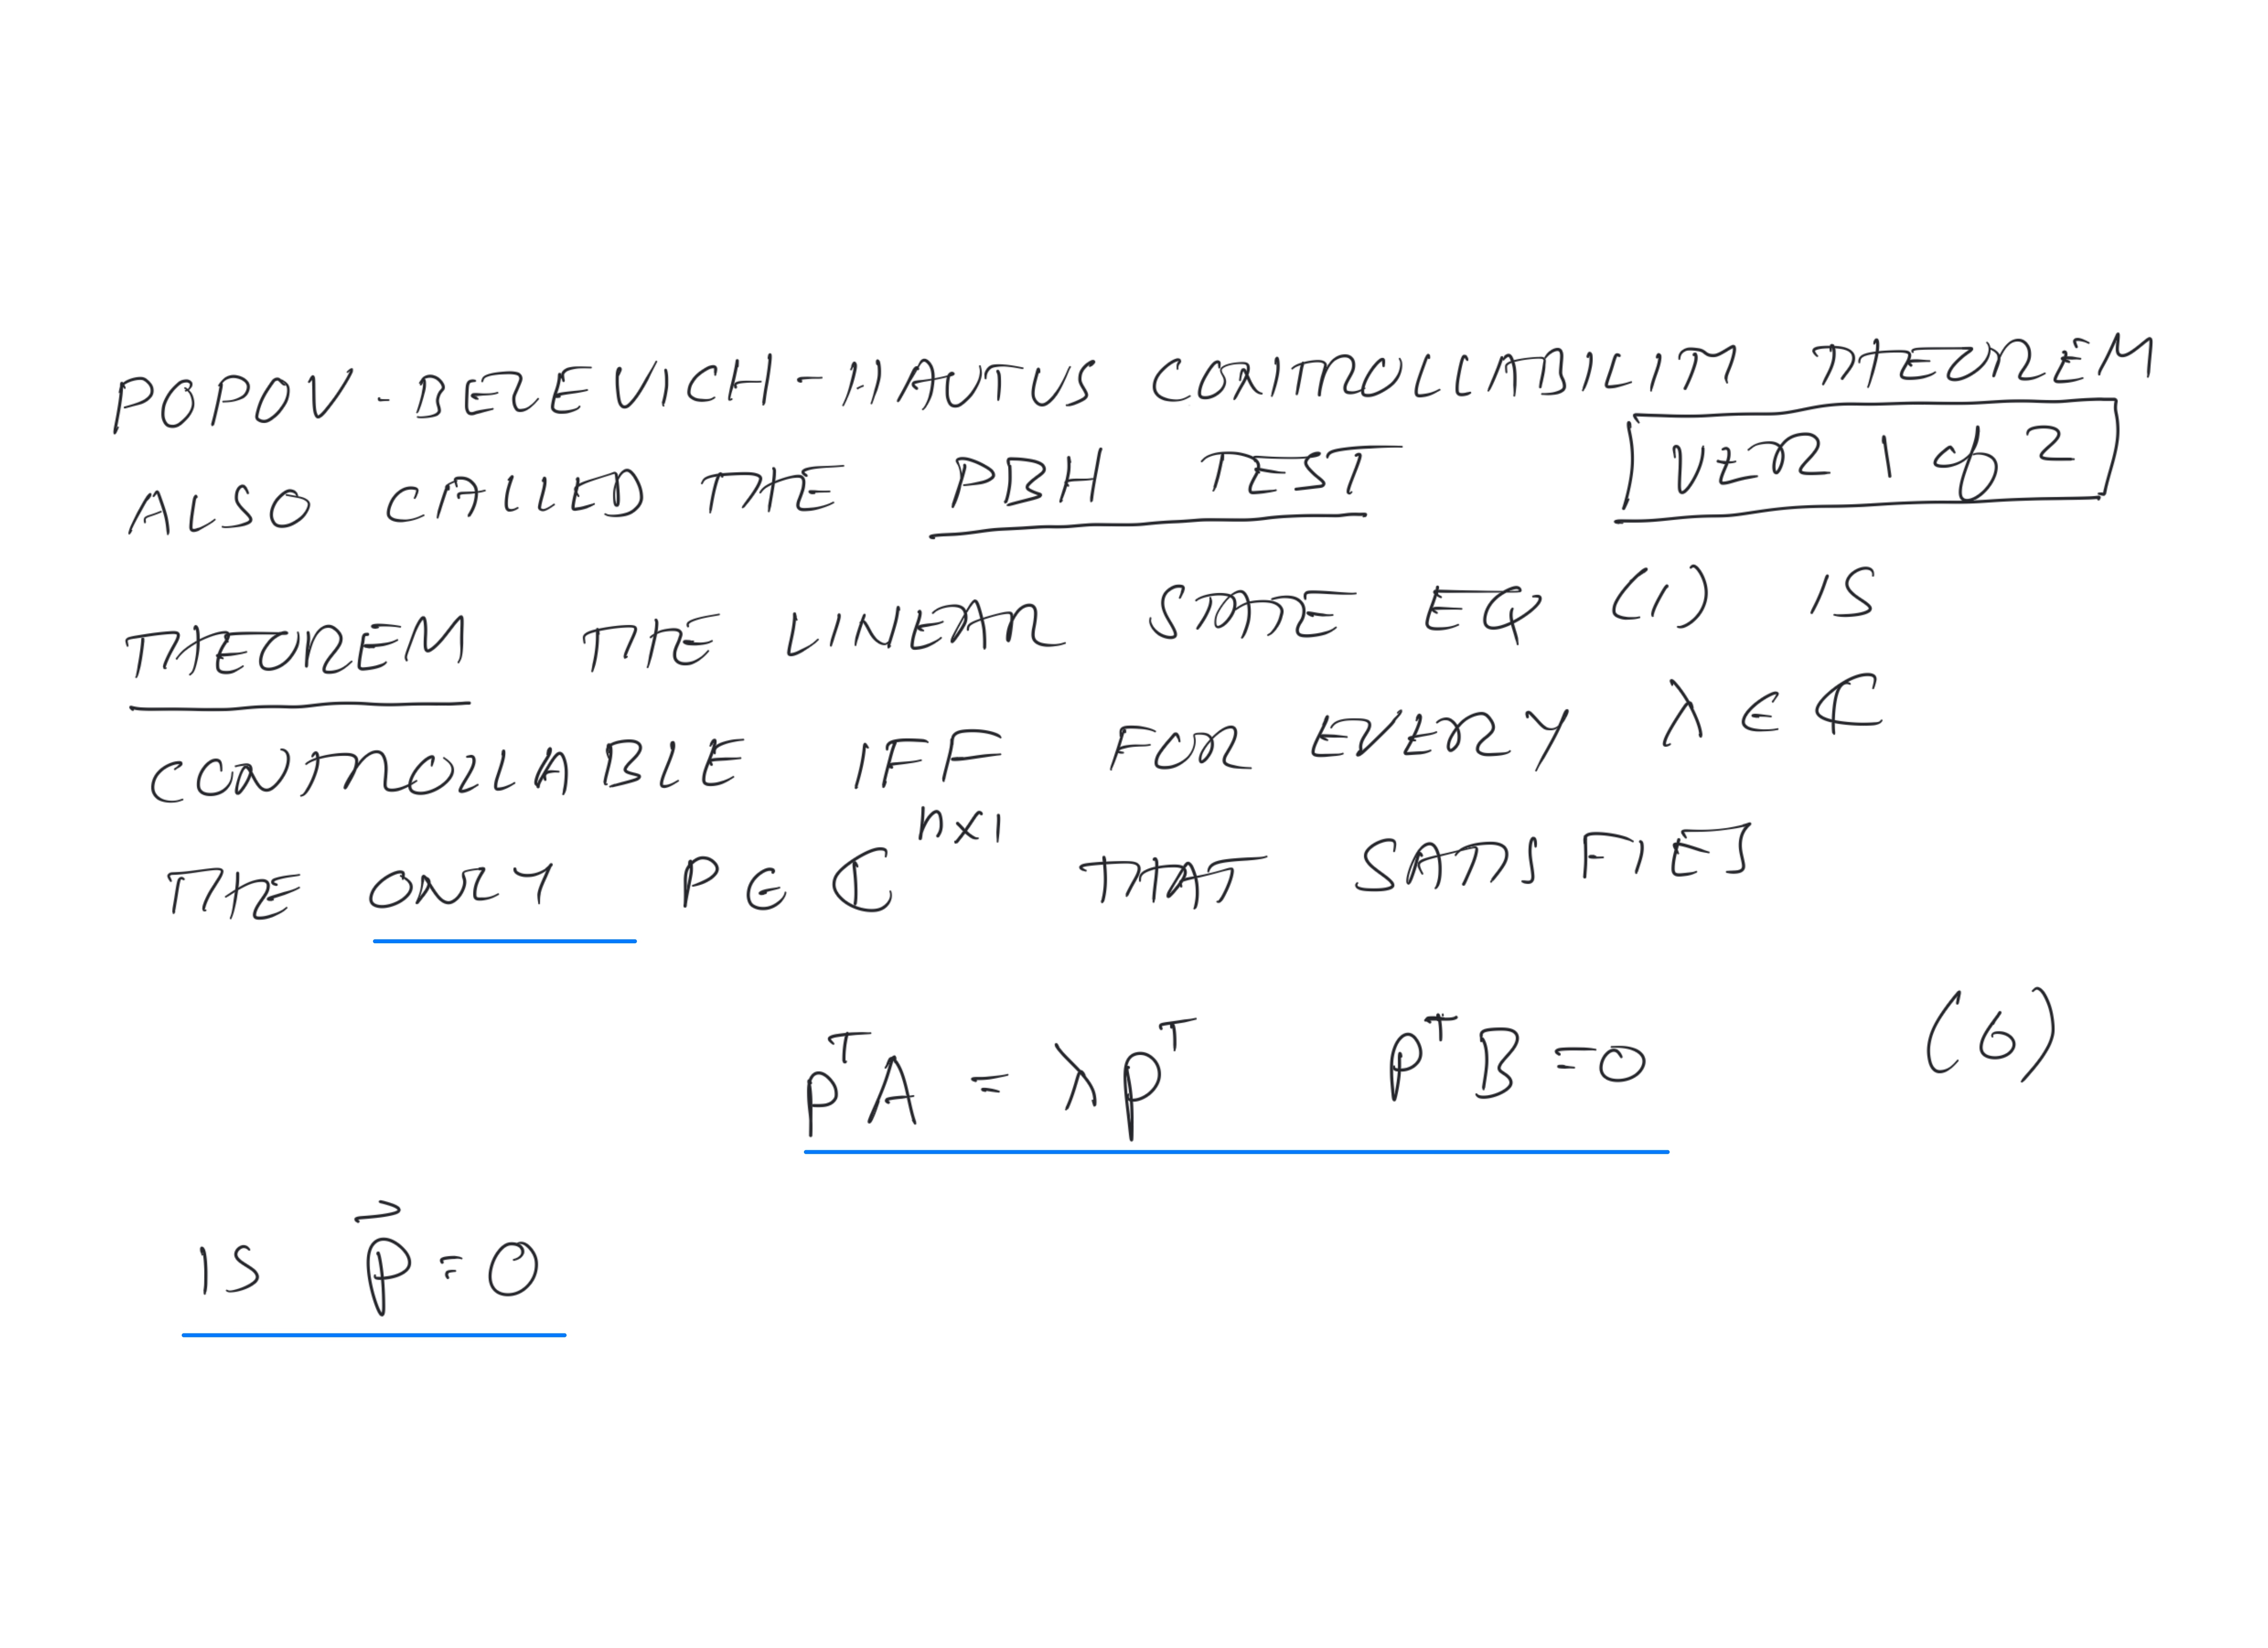 POPOV-BELEVICH-HAUTUS CONTROLLABILITY THEOREM
ALSO CALLED THE PBH TEST VER 1 of 2
THEOREM THE LINEAR STATE EQ (1) IS
CONTROLLABLE IFF FOR EVERY λ ∈ ℂ
THE ONLY P ∈ ℂ^{n×1} THAT SATISFIES
p^T A = λ p^T p^T B = 0 (6)
IS \vec{p} = 0